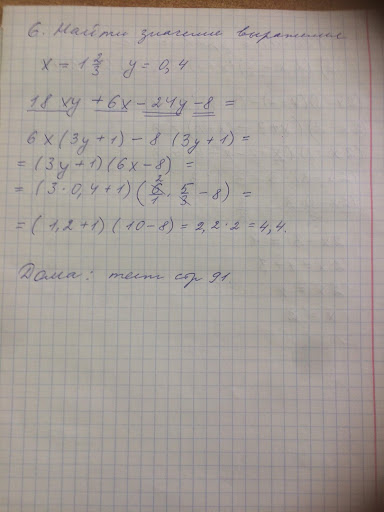 6. Найти значение выражения
x = 1 2/3 y = 0,4
18 xy + 6x - 24y - 8 =
6x (3y + 1) - 8 (3y + 1) =
= (3y + 1) (6x - 8) =
= (3 · 0,4 + 1) (6/1 · 5/3 - 8) =
= (1,2 + 1) (10 - 8) = 2,2 · 2 = 4,4.
Дома: тест стр 91.